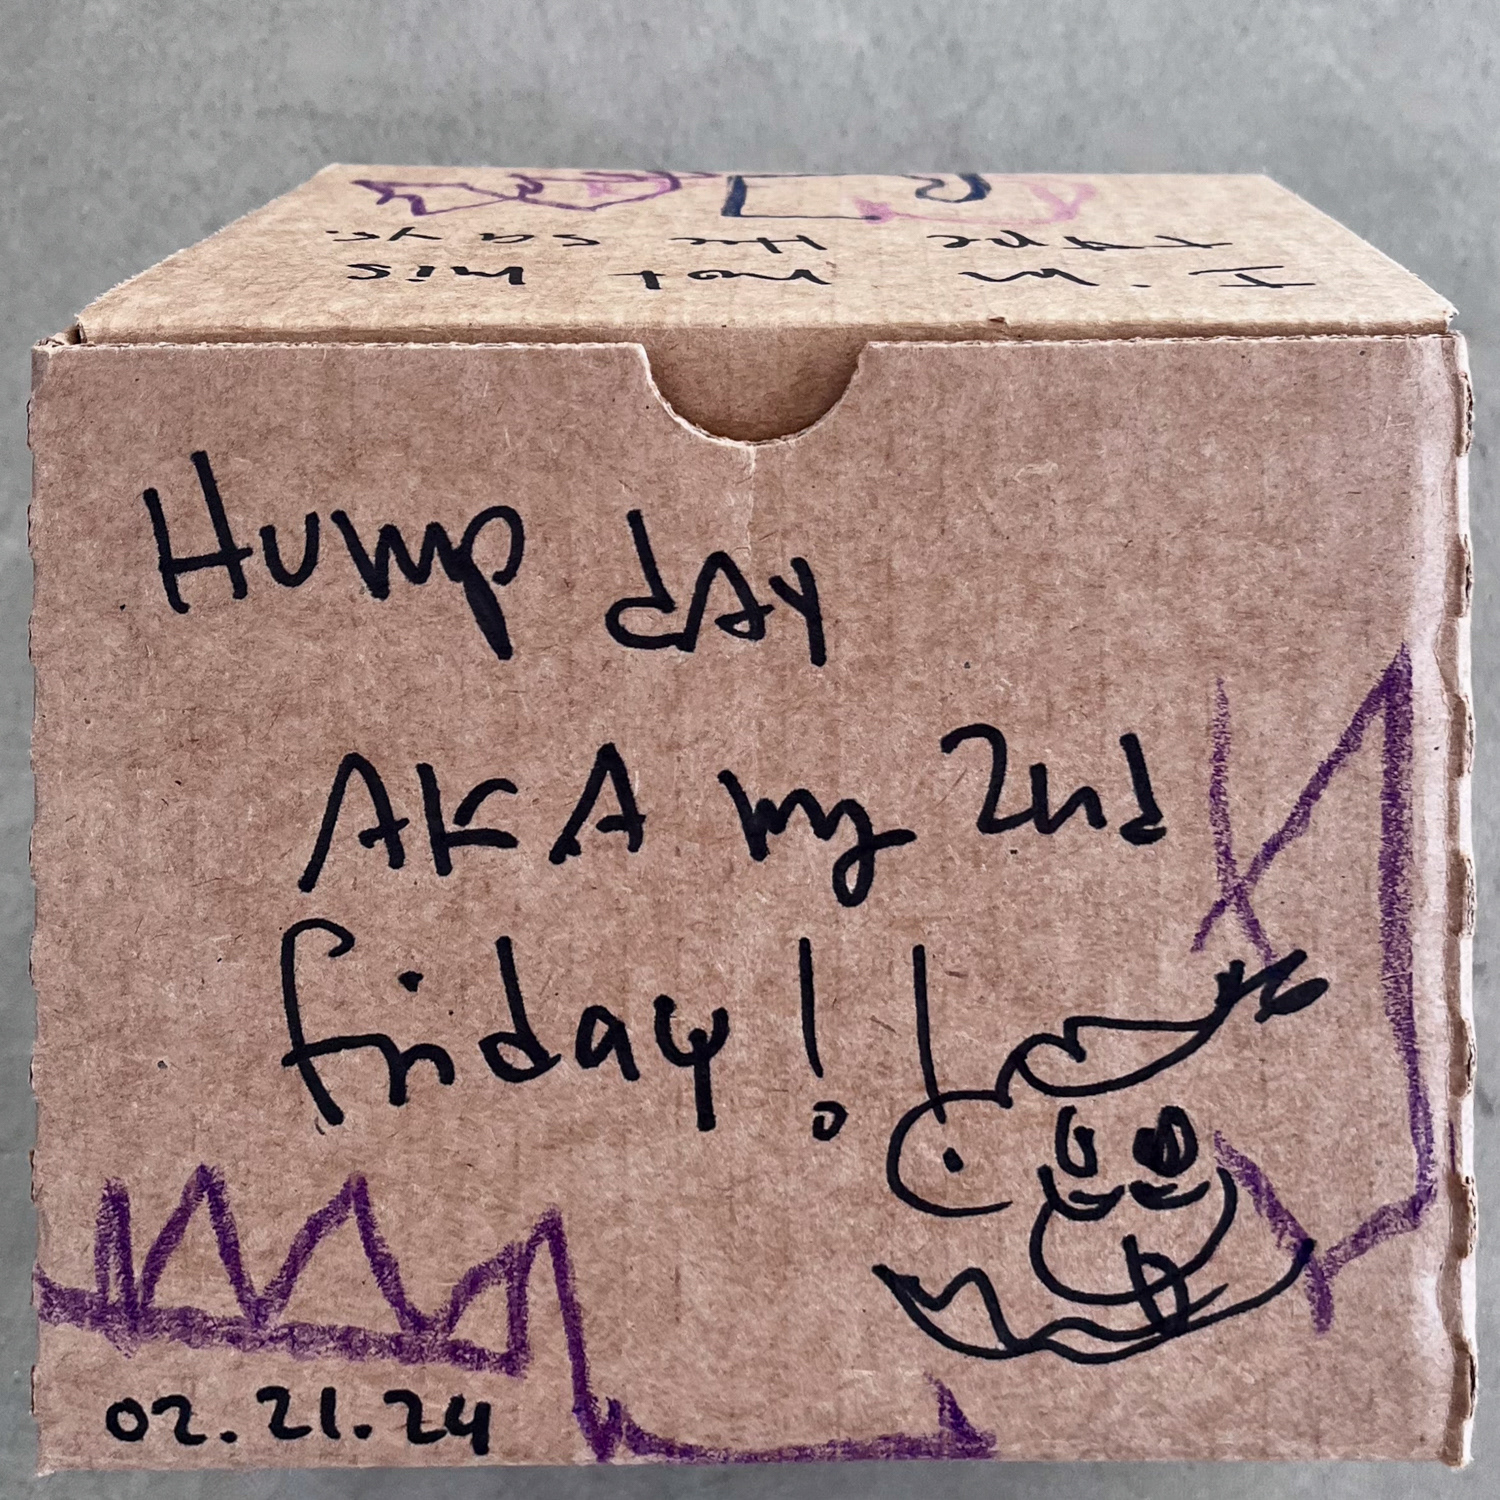 I'm not his
type says
Hump day
AKA my 2nd
friday!!
02.21.24